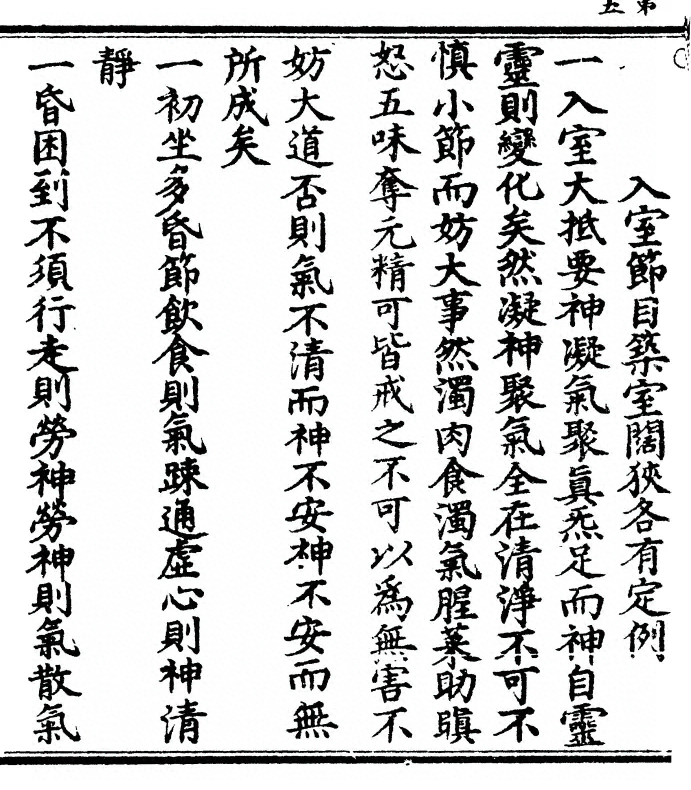 第五
入室節目築室闊狹各有定例
一入室大抵要神凝氣聚真炁足而神自靈
靈則變化矣然凝神聚氣全在清淨不可不
慎小節而妨大事然濁肉食濁氣腥葷助瞋
怒五味奪元精可皆戒之不可以為無害不
妨大道否則氣不清而神不安神不安而無
所成矣
一初坐多昏節飲食則氣踈通虛心則神清
靜
一昏困到不須行走則勞神勞神則氣散氣